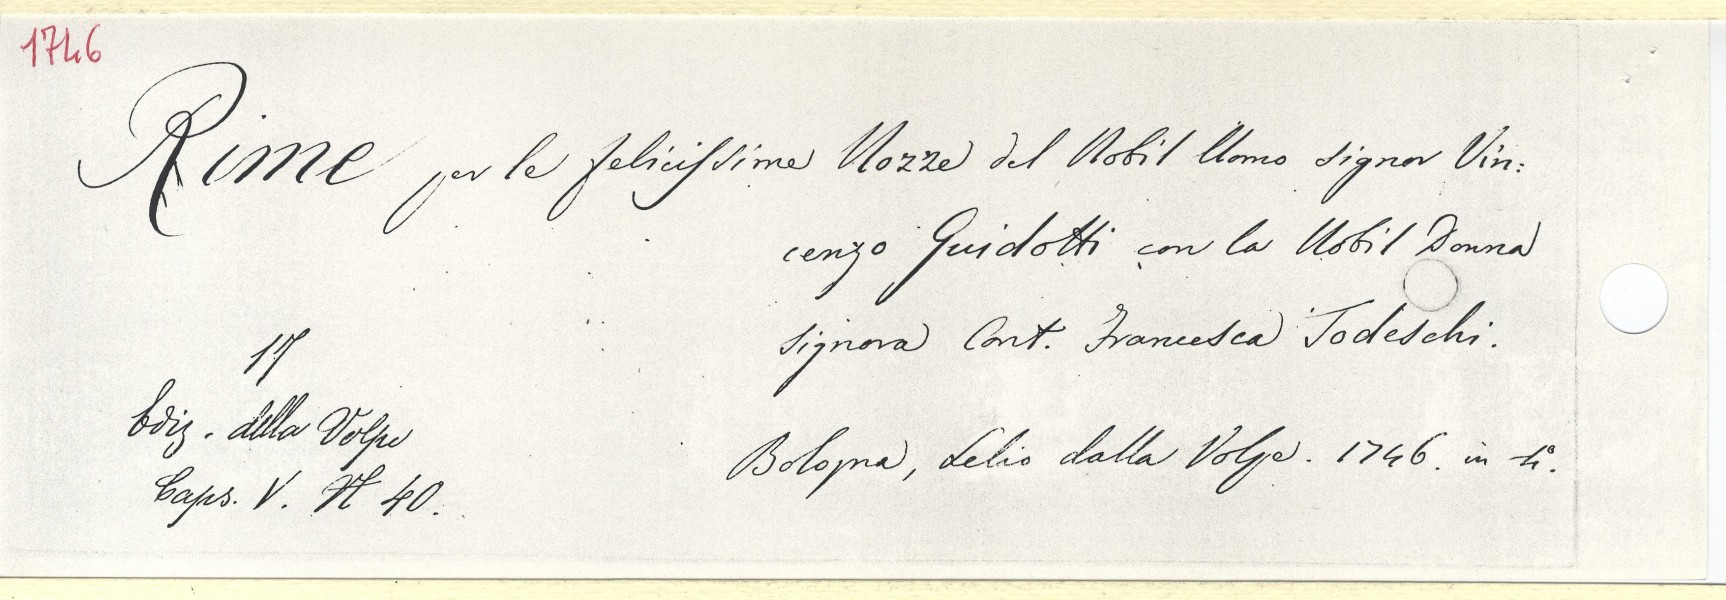 1746
Rime per le felicissime Nozze del Nobil Uomo signor Vin:
cenzo Guidotti con la Nobil Donna
signora Cont. Francesca Todeschi.
Bologna, Lelio dalla Volpe. 1746. in 4°.
17
Ediz. della Volpe
Caps. V. N 40.